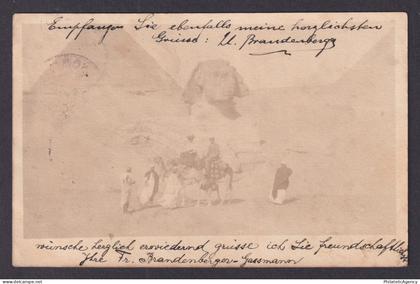 Empfangen Sie ebenfalls meine herzlichsten
Grüsse: U. Brandenberger
wünsche herzlich erwiedernd grüsse ich Sie freundschaftlichst
Ihre Fr. Brandenberger-Gassmann
www.PhilatelieAgency.com